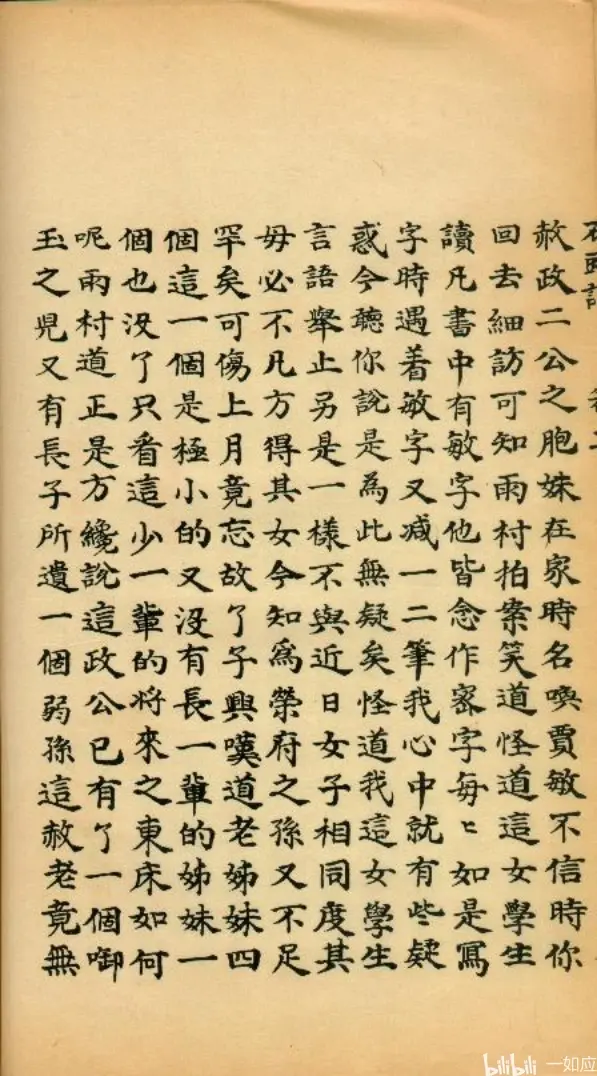 石頭記
赦政二公之胞妹在家時名喚賈敏不信時你
回去細訪可知雨村拍案笑道怪道這女學生
讀凡書中有敏字他皆念作密字每〻如是寫
字時遇着敏字又减一二筆我心中就有些疑
惑今聽你說是為此無疑矣怪道我這女學生
言語舉止另是一樣不與近日女子相同度其
毋必不凡方得其女今知爲榮府之孫又不足
罕矣可傷上月竟忘故了子興嘆道老姊妹四
個這一個是極小的又没有長一輩的姊妹一
個也没了只看這少一輩的将來之東床如何
呢雨村道正是方纔說這政公已有了一個啣
玉之児又有長子所遺一個弱孫這赦老竟無
bilibili 一如应